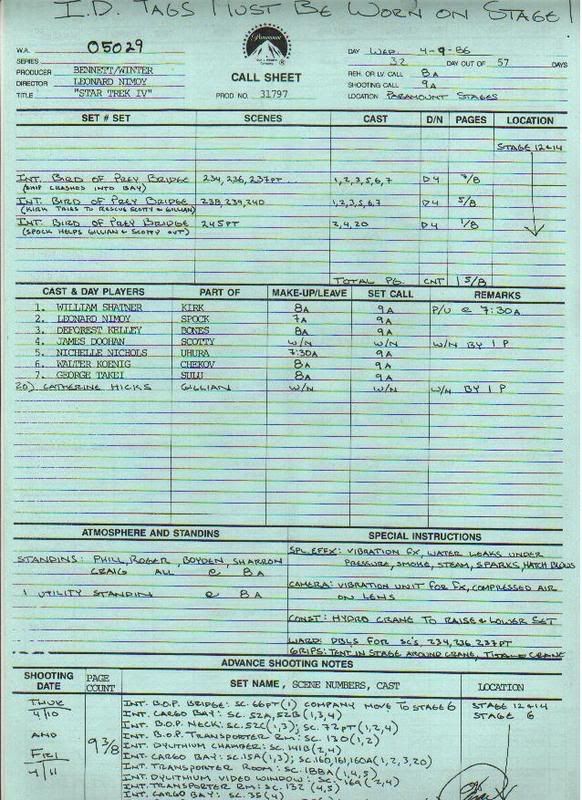 I.D. TAGS MUST BE WORN ON STAGE!
W.A. 05029
SERIES
PRODUCER BENNETT/WINTER
DIRECTOR LEONARD NIMOY
TITLE "STAR TREK IV"
Paramount
CALL SHEET
PROD NO. 31797
DAY WED 4-9-86
32 DAY OUT OF 57 DAYS
REH. OR LV. CALL 8A
SHOOTING CALL 9A
LOCATION PARAMOUNT STAGES
SET # SET SCENES CAST D/N PAGES LOCATION
STAGE 12&14
INT. BIRD OF PREY BRIDGE 234, 236, 237PT 1,2,3,5,6,7 D4 7/8
(SHIP CRASHES INTO BAY)
INT. BIRD OF PREY BRIDGE 238, 239, 240 1,2,3,5,6,7 D4 5/8
(KIRK TRIES TO RESCUE SCOTTY & GILLIAN)
INT. BIRD OF PREY BRIDGE 245PT 2,4,20 D4 1/8
(SPOCK HELPS GILLIAN & SCOTTY OUT)
TOTAL PG. CNT 1 5/8
CAST & DAY PLAYERS PART OF MAKE-UP/LEAVE SET CALL REMARKS
1. WILLIAM SHATNER KIRK 8A 9A P/U @ 7:30A
2. LEONARD NIMOY SPOCK 7A 9A
3. DEFOREST KELLEY BONES 8A 9A
4. JAMES DOOHAN SCOTTY W/N W/N W/N BY 1P
5. NICHELLE NICHOLS UHURA 7:30A 9A
6. WALTER KOENIG CHEKOV 8A 9A
7. GEORGE TAKEI SULU 8A 9A
20) CATHERINE HICKS GILLIAN W/N W/N W/N BY 1P
ATMOSPHERE AND STANDINS
STANDINS: PHILL, ROGER, BOYDEN, SHARRON
CRAIG ALL @ 8A
1 UTILITY STANDIN @ 8A
SPECIAL INSTRUCTIONS
SPL EFFX: VIBRATION FX, WATER LEAKS UNDER
PRESSURE, SMOKE, STEAM, SPARKS, HATCH BLOWS
CAMERA: VIBRATION UNIT FOR FX, COMPRESSED AIR
ON LENS
CONST: HYDRO CRANE TO RAISE & LOWER SET
WARD: DBLS FOR SC'S, 234, 236, 237PT
GRIPS: TENT IN STAGE AROUND CRANE, CRANE
ADVANCE SHOOTING NOTES
SHOOTING DATE PAGE COUNT SET NAME, SCENE NUMBERS, CAST LOCATION
THUR
4/10
AND
FRI
4/11
9 3/8
INT. B.O.P. BRIDGE: SC. 66PT (1) COMPANY MOVE TO STAGE 6 STAGE 12&14
INT. CARGO BAY: SC. 52A, 52B (1,3,4) STAGE 6
INT. B.O.P. NECK: SC. 52C (1,3); SC. 72PT (1,2,4)
INT. B.O.P. TRANSPORTER RM: SC. 130 (1,2)
INT. DYLITHIUM CHAMBER: SC. 141B (2,4)
INT. CARGO BAY: SC. 15A (1,3); SC. 160, 161, 160A (1,2,3,20)
INT. TRANSPORTER ROOM: SC. 188A (1,4,5)
INT. DYLITHIUM VIDEO WINDOW: SC. 169A (2,4)
INT. TRANSPORTER RM: SC. 132 (4,5)
INT. CARGO BAY: SC. 35 (4)